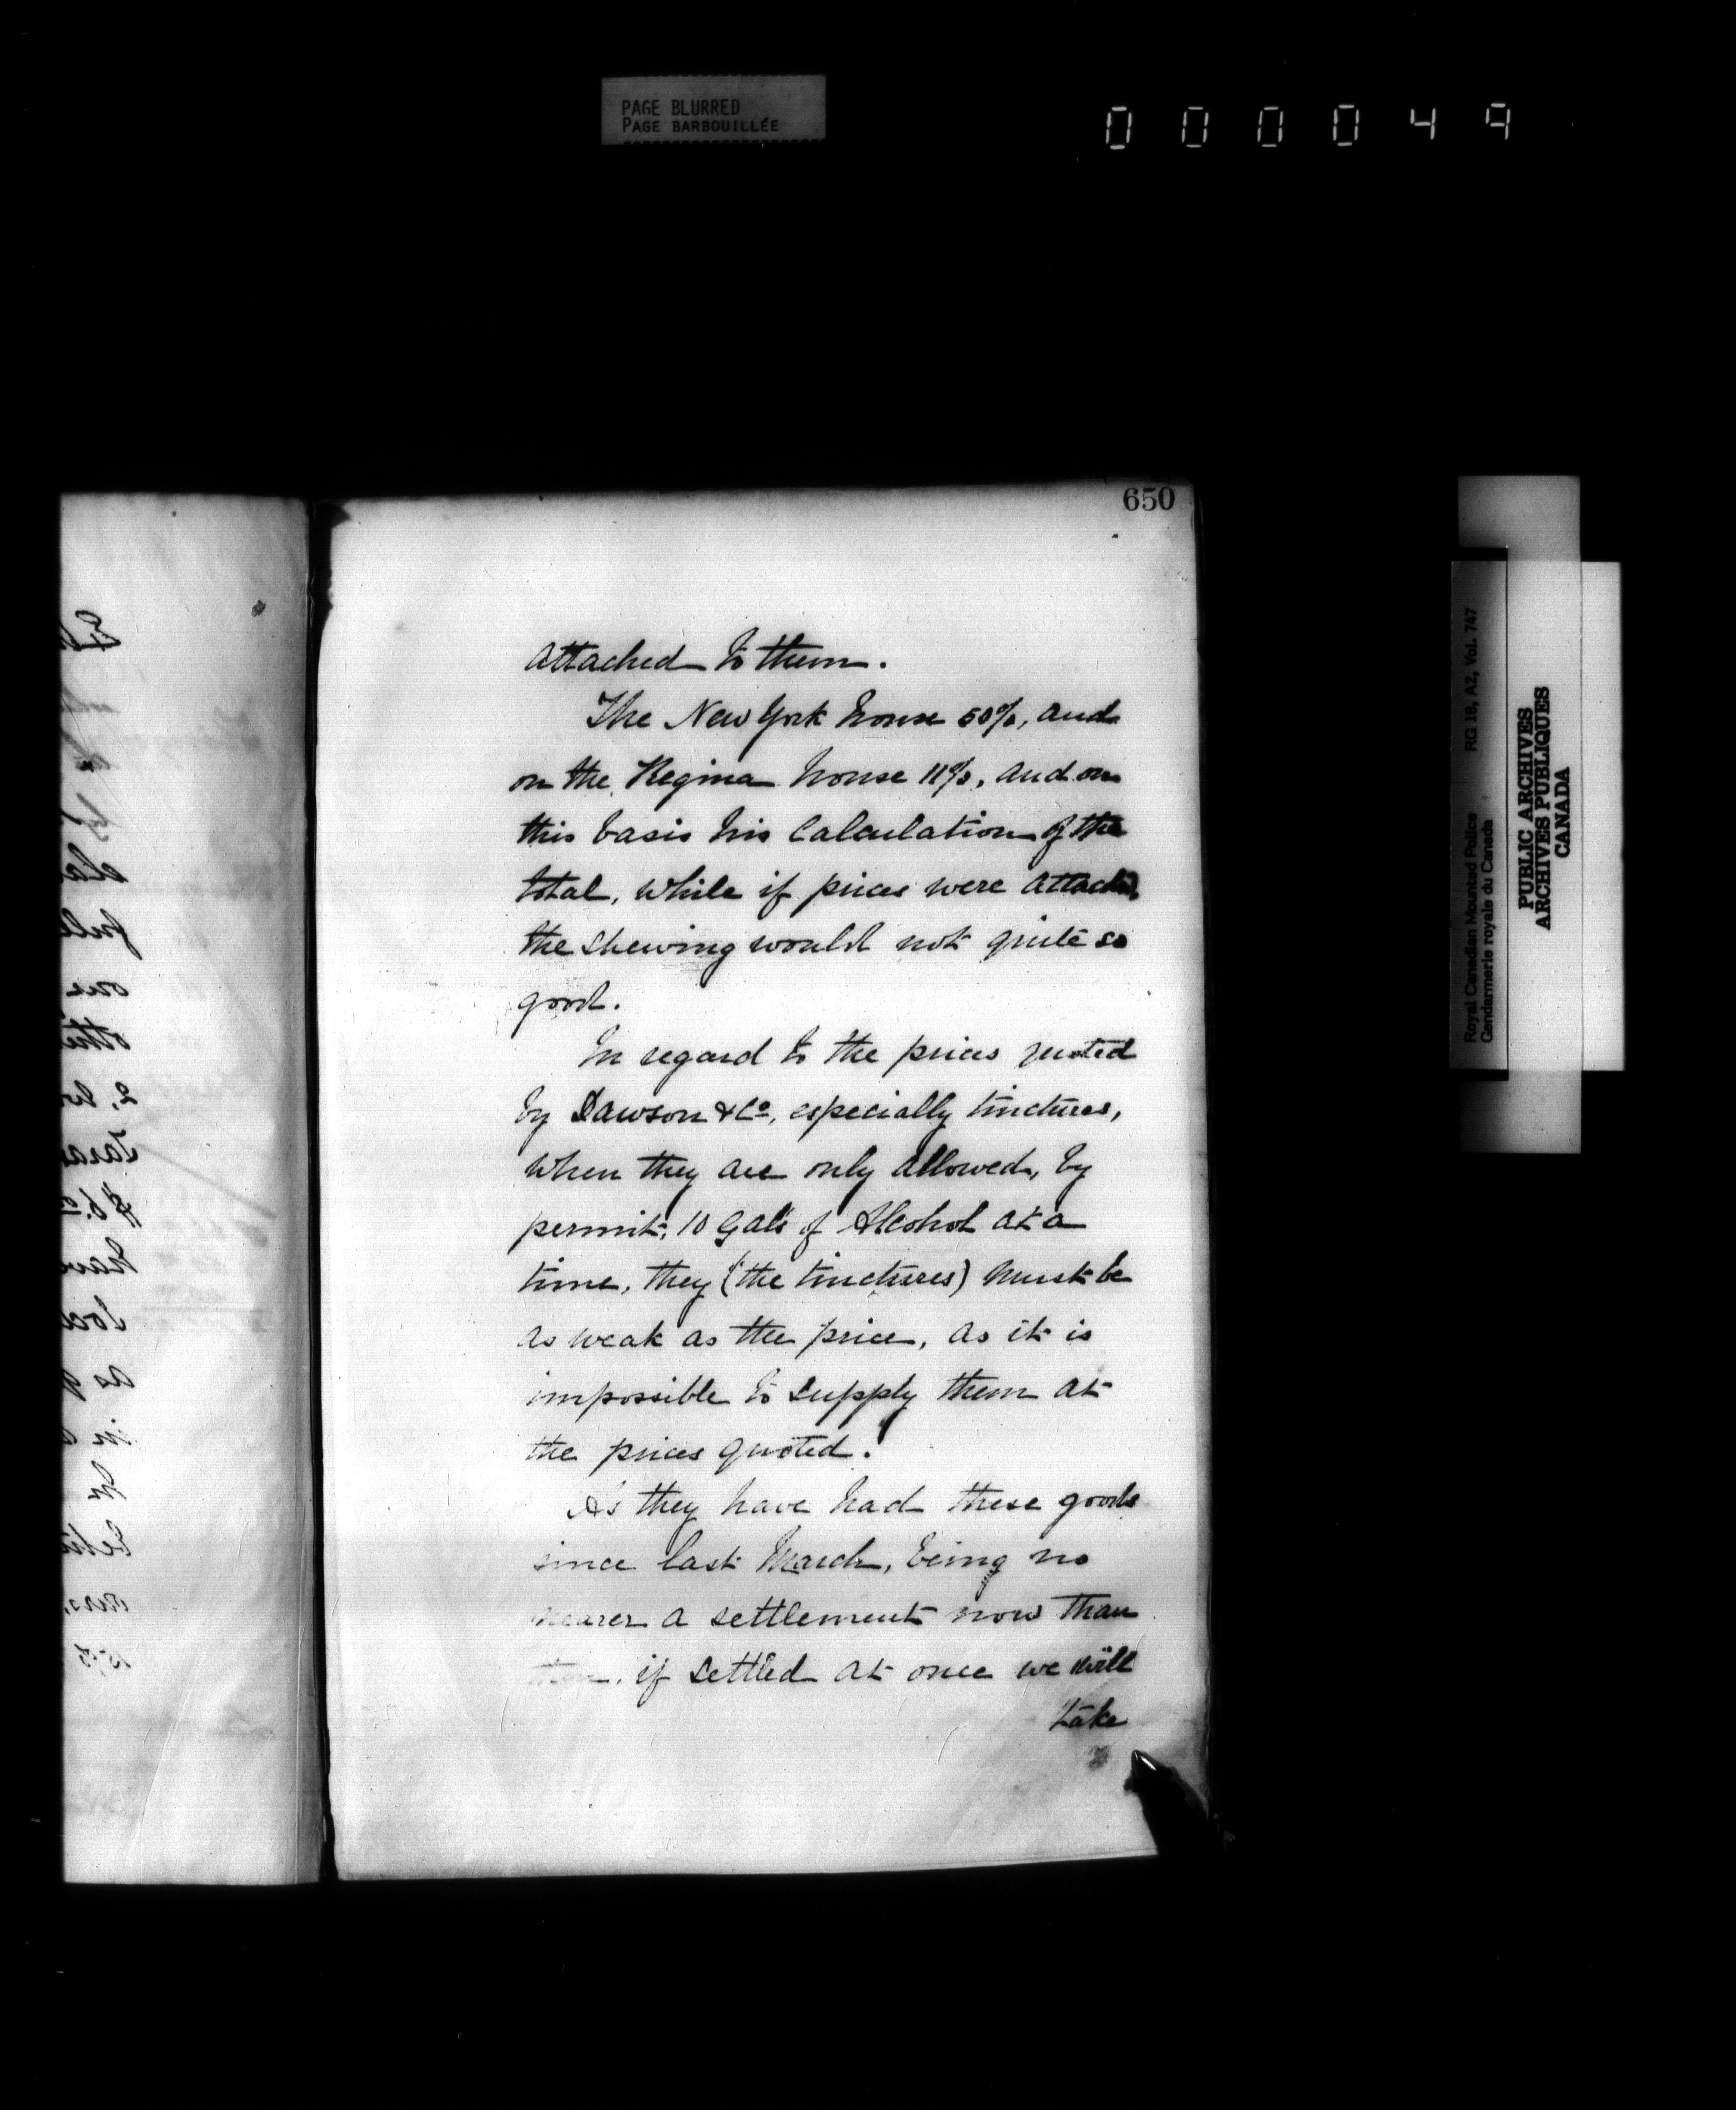 PAGE BLURRED
PAGE BARBOUILLÉE
000049
650
attached to them.
The New York house 50%, and
on the Regina house 11%, and on
this basis his Calculation of the
total, while if prices were attached,
the shewing would not quite so
good.
In regard to the prices quoted
by Dawson & Co, especially tinctures,
when they are only allowed, by
permit, 10 Gals of Alcohol at a
time, they (the tinctures) must be
as weak as the price, as it is
impossible to supply them at
the prices quoted.
As they have had these goods
since last March, being no
nearer a settlement now than
if settled at once we will
take
Royal Canadian Mounted Police RG 18, A2, Vol. 747
Gendarmerie royale du Canada
PUBLIC ARCHIVES
ARCHIVES PUBLIQUES
CANADA